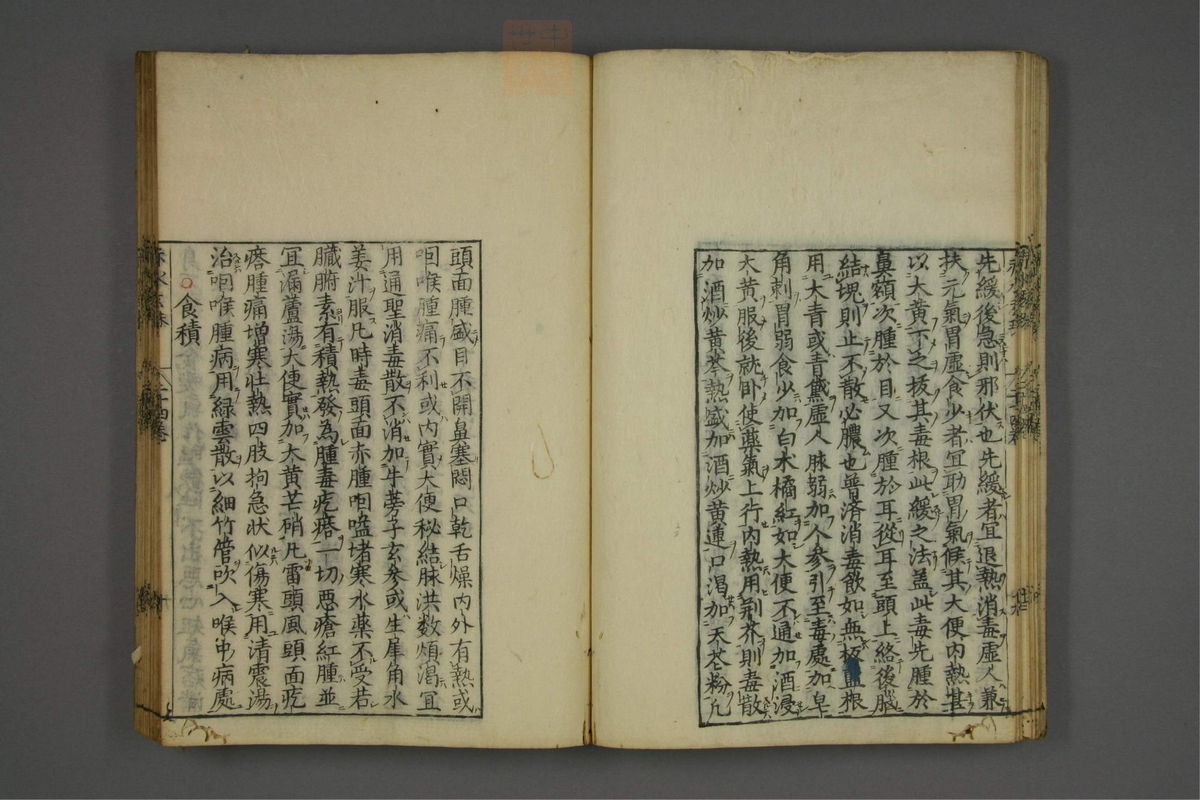 先緩後急則邪伏也先緩者宜退熱消毒虛人兼
扶元氣胃虛食少者宜助胃氣候其大便內熱甚
以大黃下之拔其毒根此緩之法蓋此毒先腫於
鼻額次腫於目又次腫於耳從耳至頭上絡後腦
結塊則止不散必膿也普済消毒飲如無板藍根
用大青或青黛虛人脉弱加人参引至毒處加皂
角刺胃弱食少加白术橘紅如大便不通加酒浸
大黃服後就卧使藥氣上行內熱用荆芥則毒散
加酒炒黃芩熱盛加酒炒黃連口渇加天花粉凢
頭面腫盛目不開鼻塞悶口乾舌燥內外有熱或
咽喉腫痛不利或內實大便秘結脉洪数煩渴宜
用通聖消毒散不消加牛蒡子玄参或生犀角水
姜汁服凢時毒頭面赤腫咽嗌堵塞水藥不受若
臓腑素有積熱發為腫毒疙瘩一切惡瘡紅腫並
宜漏蘆湯大便實加大黃芒硝凢雷頭風頭面疙
瘩腫痛增寒壮熱四肢拘急状似傷寒用清震湯
治咽喉腫病用緑雲散以細竹管吹入喉中病處
○食積